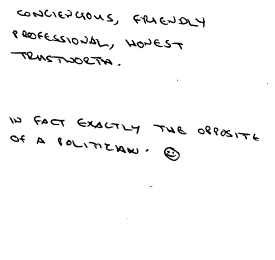 CONCIENCOUS, FRIENDLY
PROFESSIONAL, HONEST
TRUSTWORTH.
IN FACT EXACTLY THE OPPOSITE
OF A POLITICIAN. ☺